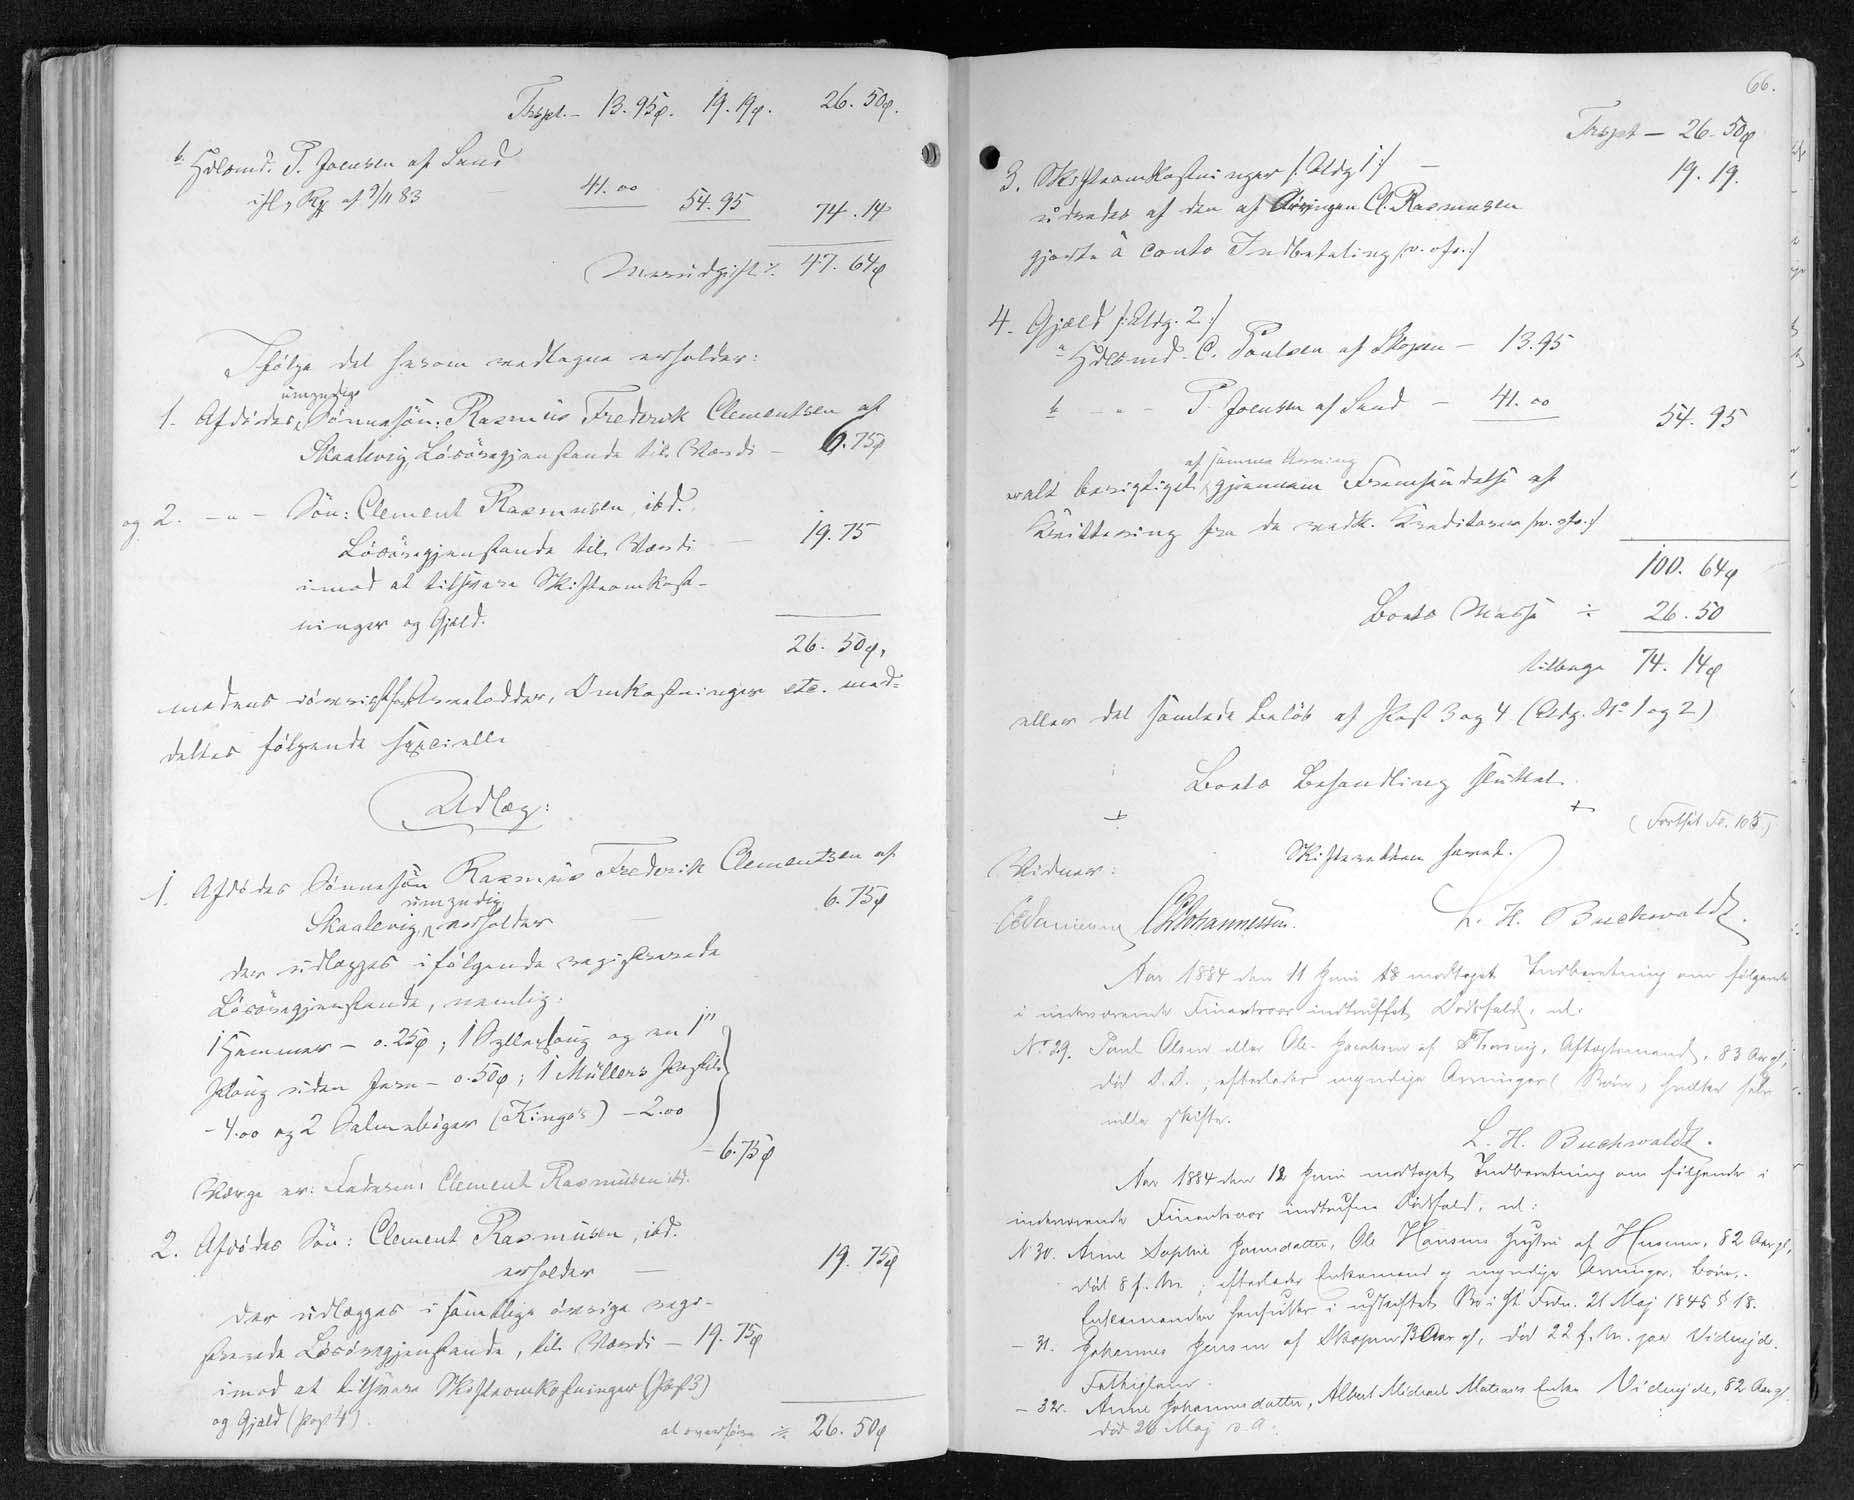 Trspt. – 13.95ø. 19.19ø. 26.50ø.
b. Hdlsmd. P. Joensen af Sand
ifl. Rg af 9/11 83 – 41.00 54.95 74.14
Merudgift ÷ 47.64ø
Ifølge det saasom vedtagne erholder:
umyndige
1. Afdødes Sønnesøn: Rasmus Frederik Clementsen af
Skaalevig, Løsøregjenstande til Værdi – 6.75ø
og 2. – " – Søn: Clement Rasmusen, ibd.
Løsøregjenstande til Værdi – 19.75
imod at tilsvare Skifteomkost-
ninger og Gjæld.
26.50ø,
medens iøvrigt for Arvelodder, Omkostninger etc. med-
deltes følgende specielle
Udlæg:
1. Afdødes Sønnesøn Rasmus Frederik Clementsen af
umyndig
Skaalevig, erholder – 6.75ø
der udlægges i følgende registrerede
Løsøregjenstande, nemlig:
1 Hammer – 0.25ø; 1 og en 1"
Ploug uden Jern – 0.50ø; 1 Müllers Postil
– 4.00 og 2 Salmebøger (Kingos) – 2.00
– 6.75ø
Værge er: Faderen: Clement Rasmusen ibd.
2. Afdødes Søn: Clement Rasmusen, ibd.
erholder – 19.75ø
der udlægges i samtlige øvrige regi-
strerede Løsøregjenstande, til Værdi – 19.75ø
imod at tilsvare Skifteomkostninger (Post 3)
og Gjæld (Post 4).
at overføre ÷ 26.50ø
66.
Trspt – 26.50ø
3. Skifteomkostninger /: Udg 1 :/ – 19.19.
udredes af den af Arvingen Cl. Rasmusen
gjorte à conto Indbetaling
4. Gjæld /: Udg. 2 :/
a Hdlsmd. C. Poulsen af Skopen – 13.95
b – " – P. Joensen af Sand – 41.00 54.95
af samme Arving
er alt berigtiget gjennem Fremsendelse af
Kvittering fra de vedk. Kreditorer
100.64ø
Boets Masse ÷ 26.50
tilbage 74.14ø
eller det samlede Beløb af Post 3 og 4 (Udg. No 1 og 2)
Boets Behandling sluttet.
(Fortsat Fo. 105)
Skifteretten hævet.
Vidner:
Johannessen. L. H. Buchwaldt.
Aar 1884 den 11 Juni modtoges Indberetning om følgende
i indeværende Finantsaar indtruffet Dødsfald, nl.
No 29. Poul Olsen eller Ole Jacobsen af , Aftægtsmand, 83 Aar gl,
død D. D.; efterlader myndige Arvinger (Børn, hvilke selv
ville skifte.
L. H. Buchwaldt.
Aar 1884 den 12 Juni modtoges Indberetning om følgende i
indeværende Finantsaar indtrufne Dødsfald, nl:
No 30. Anne Sophie Joensdatter, Ole Hansens Hustru af Husum, 82 Aar gl,
død 8 f. M.; efterlader Enkemand og myndige Arvinger, Børn.
Enkemanden hensidder i uskiftet Bo ifl. Frdn. 21 Maj 1845 § 18.
– 31. Johannes Jensen af Skopen Aar gl, død 22 f. M. paa Viderejde.
Fattiglem.
– 32. Anne Johannesdatter, Albert Michael Matrass Enke Viderejde, 82 Aar gl.
død 26 Maj d. A.